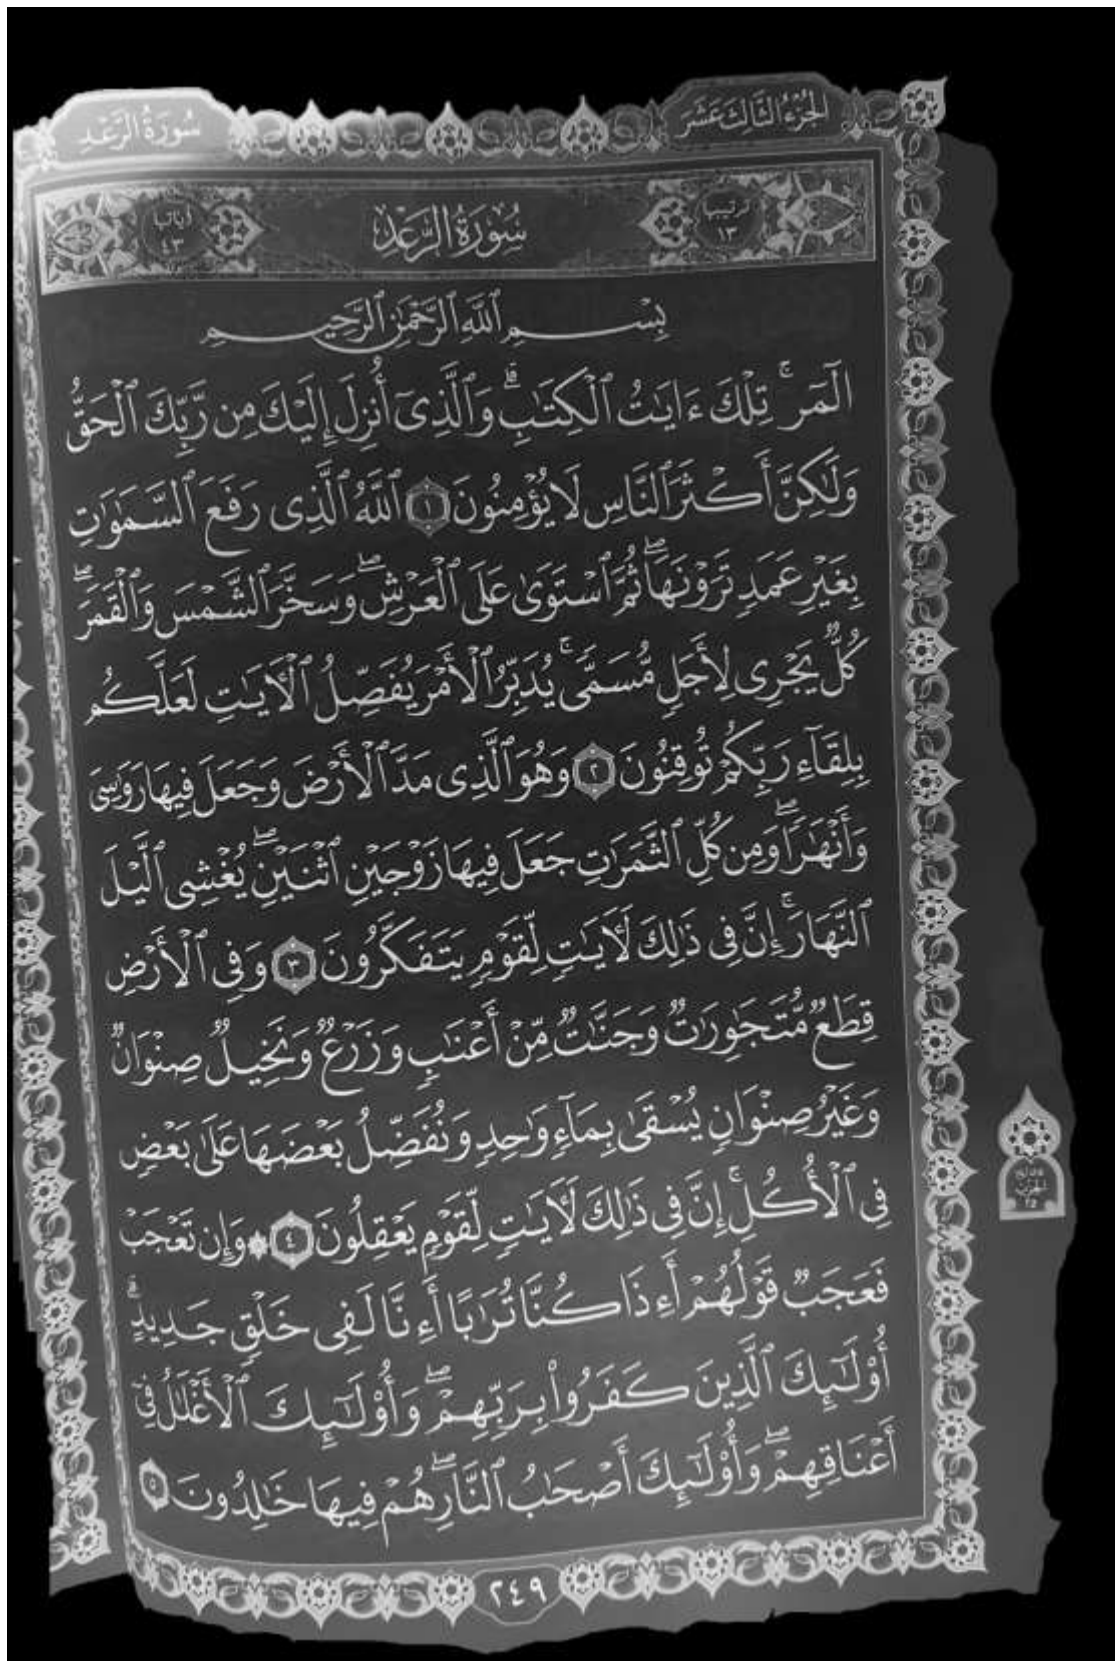 الجُزْءُ الثَّالِثَ عَشَرَ
سُورَةُ الرَّعْدِ
ترتيبها ١٣
سُورَةُ الرَّعْدِ
آياتها ٤٣
بِسْمِ ٱللَّهِ ٱلرَّحْمَٰنِ ٱلرَّحِيمِ
الٓمٓرۚ تِلْكَ ءَايَٰتُ ٱلْكِتَٰبِۗ وَٱلَّذِىٓ أُنزِلَ إِلَيْكَ مِن رَّبِّكَ ٱلْحَقُّ
وَلَٰكِنَّ أَكْثَرَ ٱلنَّاسِ لَا يُؤْمِنُونَ ١ ٱللَّهُ ٱلَّذِى رَفَعَ ٱلسَّمَٰوَٰتِ
بِغَيْرِ عَمَدٍ تَرَوْنَهَاۖ ثُمَّ ٱسْتَوَىٰ عَلَى ٱلْعَرْشِۖ وَسَخَّرَ ٱلشَّمْسَ وَٱلْقَمَرَۖ
كُلٌّ يَجْرِى لِأَجَلٍ مُّسَمًّىۚ يُدَبِّرُ ٱلْأَمْرَ يُفَصِّلُ ٱلْءَايَٰتِ لَعَلَّكُم
بِلِقَآءِ رَبِّكُمْ تُوقِنُونَ ٢ وَهُوَ ٱلَّذِى مَدَّ ٱلْأَرْضَ وَجَعَلَ فِيهَا رَوَٰسِىَ
وَأَنْهَٰرًاۖ وَمِن كُلِّ ٱلثَّمَرَٰتِ جَعَلَ فِيهَا زَوْجَيْنِ ٱثْنَيْنِۖ يُغْشِى ٱلَّيْلَ
ٱلنَّهَارَۚ إِنَّ فِى ذَٰلِكَ لَءَايَٰتٍ لِّقَوْمٍ يَتَفَكَّرُونَ ٣ وَفِى ٱلْأَرْضِ
قِطَعٌ مُّتَجَٰوِرَٰتٌ وَجَنَّٰتٌ مِّنْ أَعْنَٰبٍ وَزَرْعٌ وَنَخِيلٌ صِنْوَانٌ
وَغَيْرُ صِنْوَانٍ يُسْقَىٰ بِمَآءٍ وَٰحِدٍ وَنُفَضِّلُ بَعْضَهَا عَلَىٰ بَعْضٍ
فِى ٱلْأُكُلِۚ إِنَّ فِى ذَٰلِكَ لَءَايَٰتٍ لِّقَوْمٍ يَعْقِلُونَ ٤ ۞ وَإِن تَعْجَبْ
فَعَجَبٌ قَوْلُهُمْ أَءِذَا كُنَّا تُرَٰبًا أَءِنَّا لَفِى خَلْقٍ جَدِيدٍۗ
أُو۟لَٰٓئِكَ ٱلَّذِينَ كَفَرُوا۟ بِرَبِّهِمْۖ وَأُو۟لَٰٓئِكَ ٱلْأَغْلَٰلُ فِىٓ
أَعْنَاقِهِمْۖ وَأُو۟لَٰٓئِكَ أَصْحَٰبُ ٱلنَّارِۖ هُمْ فِيهَا خَٰلِدُونَ ٥
٢٤٩